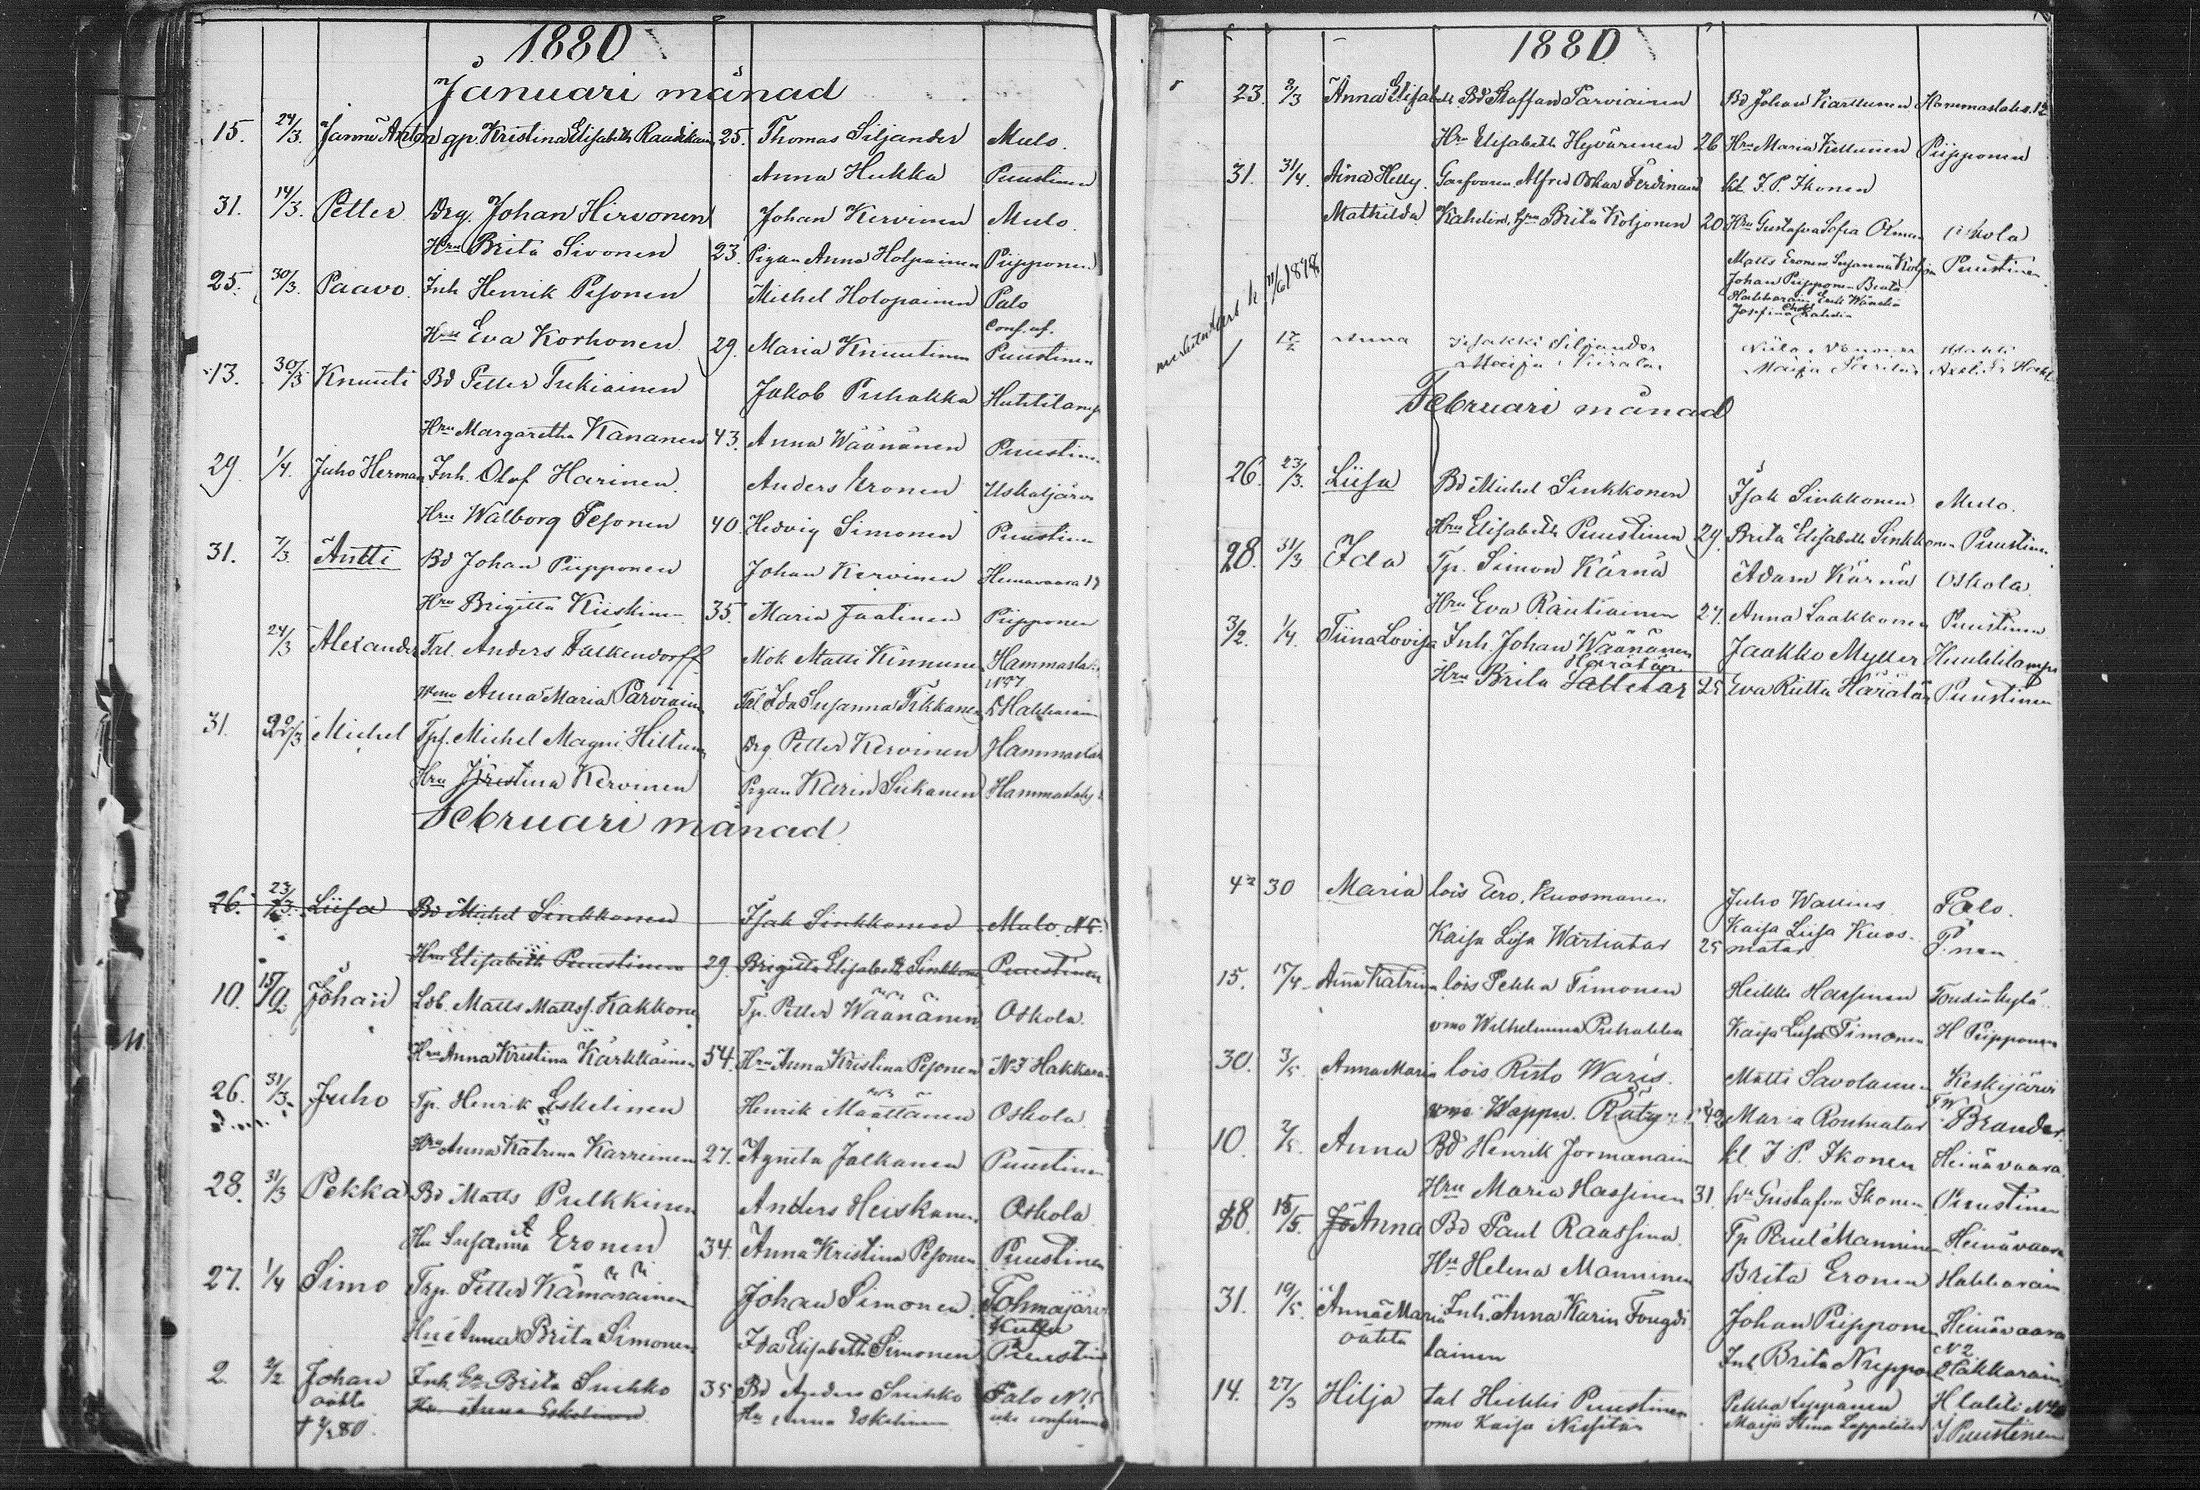 1880
Januari månad
15. 24/3. Janne Anton gp. Kristina Elisabeth 25. Thomas Siljander Mulo.
Anna Hukka Puustinen
31. 14/3. Petter Drg. Johan Hirvonen Johan Kervinen Mulo
Hru Brita Sivonen 23. Pigan Anna Holpainen Piipponen
25. 30/3. Paavo. Inh Henrik Pesonen Michel Holopainen Palo
Conf. af.
Hru Eva Korhonen 29. Maria Knuutinen Puustinen
13. 30/3 Knuuti Bd Petter Tukiainen Jakob Puhakka Huhtilamp
Hru Margaretha Kananen 43. Anna Wäänänen Puustinen
29 1/4. Juho Herman Inh. Olof Harinen. Anders Kronen Uskaljärvi
Hru Walborg Pesonen 40. Hedvig Simonen Puustinen
31. 7/3. Antti Bd Johan Piipponen Johan Kervinen Heinavaara 19
Hru Brigitta Kiiskinen 35. Maria Jaatinen Piipponen
24/3 Alexander Tal. Anders Falkendorff Mok Matti Kinnunen Hammaslah.
N:o 7
Wmo Anna Maria Parviain Tal Ida Susanna Tikkanen Hakkarain
31. 20/3 Michel Tpf. Michel Magni Hiltun Drg Petter Kervinen Hammaslah
Hru Kristina Kervinen Pigan Karin Siikanen Hammaslah
Februari månad
26. 23/3. Liisa Bd Michel Sinkkonen Isak Sinkkonen Mulo N 5.
Hru Elisabeth Puustinen 29. Brigitta Elisabeth Sinkkonen Puustinen
10. 15/2 Johan Lsb. Matts Mattsf. Kakkone Tp. Petter Wäänänen Oskola.
Hru Anna Kristina Kärkkäinen 54. Hru Anna Kristina Pesonen N:3 Hakkarai
26. 31/3. Juho Tp. Henrik Eskelinen Henrik Määttänen Oskola.
Hru Anna Katrina Karreinen 27. Agneta Jalkanen Puustinen
28. 31/3 Pekka Bd Matts Pulkkinen Anders Heiskanen. Oskola
Hu Susanna Eronen 34. Anna Kristina Pesonen Puustinen
27. 1/4 Simo Trp. Petter Kämäräinen Johan Simonen Tohmajärvi
Hru Anna Brita Simonen Ida Elisabeth Simonen Puustin
2. 2/2 Johan Inh. Brita Suikko 35 Bd Anders Suikko Palo N:15
oäkta Hu. Anna Eskelinen Hu Anna Eskelinen
† 2/2 80.
1880
23. 2/3 Anna Elisabeth Bd Staffan Parviainen Bd Johan Karttunen Hammaslah.
Hru Elisabeth Hyvärinen 26 Hru Maria Kettunen Piipponen
31. 31/4. Aina Helly. Garfvaren Alfred Oskar Ferdinand kl. I. P. Ikonen
Mathilda Kahelin, hru Brita Koljonen 20 Hru Gustafva Sofia
Matts Eronen Susanna Puustinen
Johan Piipponen Beata
Josefina Kahelin
11/6 1898
17/2 Anna Isakki Siljander
Maija
Februari månad
26. 23/3. Liisa Bd Michel Sinkkonen Isak Sinkkonen Mulo.
Hru Elisabeth Puustinen 29. Brita Elisabeth Sinkkonen Puustinen
28. 31/3 Ida Tp. Simon Kärnä Adam Kärnä Oskola
Hru Eva Rautiainen 27. Anna Laakkonen Puustinen
3/2 1/4. Tiina Lovisa Inh. Johan Wäänänen Jaakko Myller Huuhtilampi
Härätär
Hru Brita 25 Eva Riitta Härätär Puustinen
30 Maria lois Eero. Kuosmanen Juho Palo.
Kaisa Liisa Wartiatar 25 Kaisa Liisa Kuos- P:nen
matar
15. 15/4 Anna Katrina lois Pekka Timonen Heikki Hassinen
vmo Wilhelmiina Puhakka Kaisa Liisa Timonen H Piipponen
30. 3/5. Anna Maria lois Risto Waris. Matti Savolainen Keskijärvi
vmo Wappu. Maria Rouhiatar Brander.
10. 2/5. Anna Bd Henrik Jormanain kl. I P. Ikonen Heinävaara
Hru Maria Hassinen 31. hru Gustafva Ikonen Puustinen
18. 18/5. Anna Bd Paul Raassina. Tp Paul Manninen Heinävaara
Hru Helena Manninen Brita Eronen Hakkarain
31. 19/5. Anna Maria Inh. Anna Karin Fougdi Johan Piipponen Heinävaara
oäkta lainen Inh Brita Nuppo N 2 Hakkarain
14. 27/3 Hilja tal Heikki Puustinen Pekka Leppänen
vmo Kaisa Maija Stina Puustinen